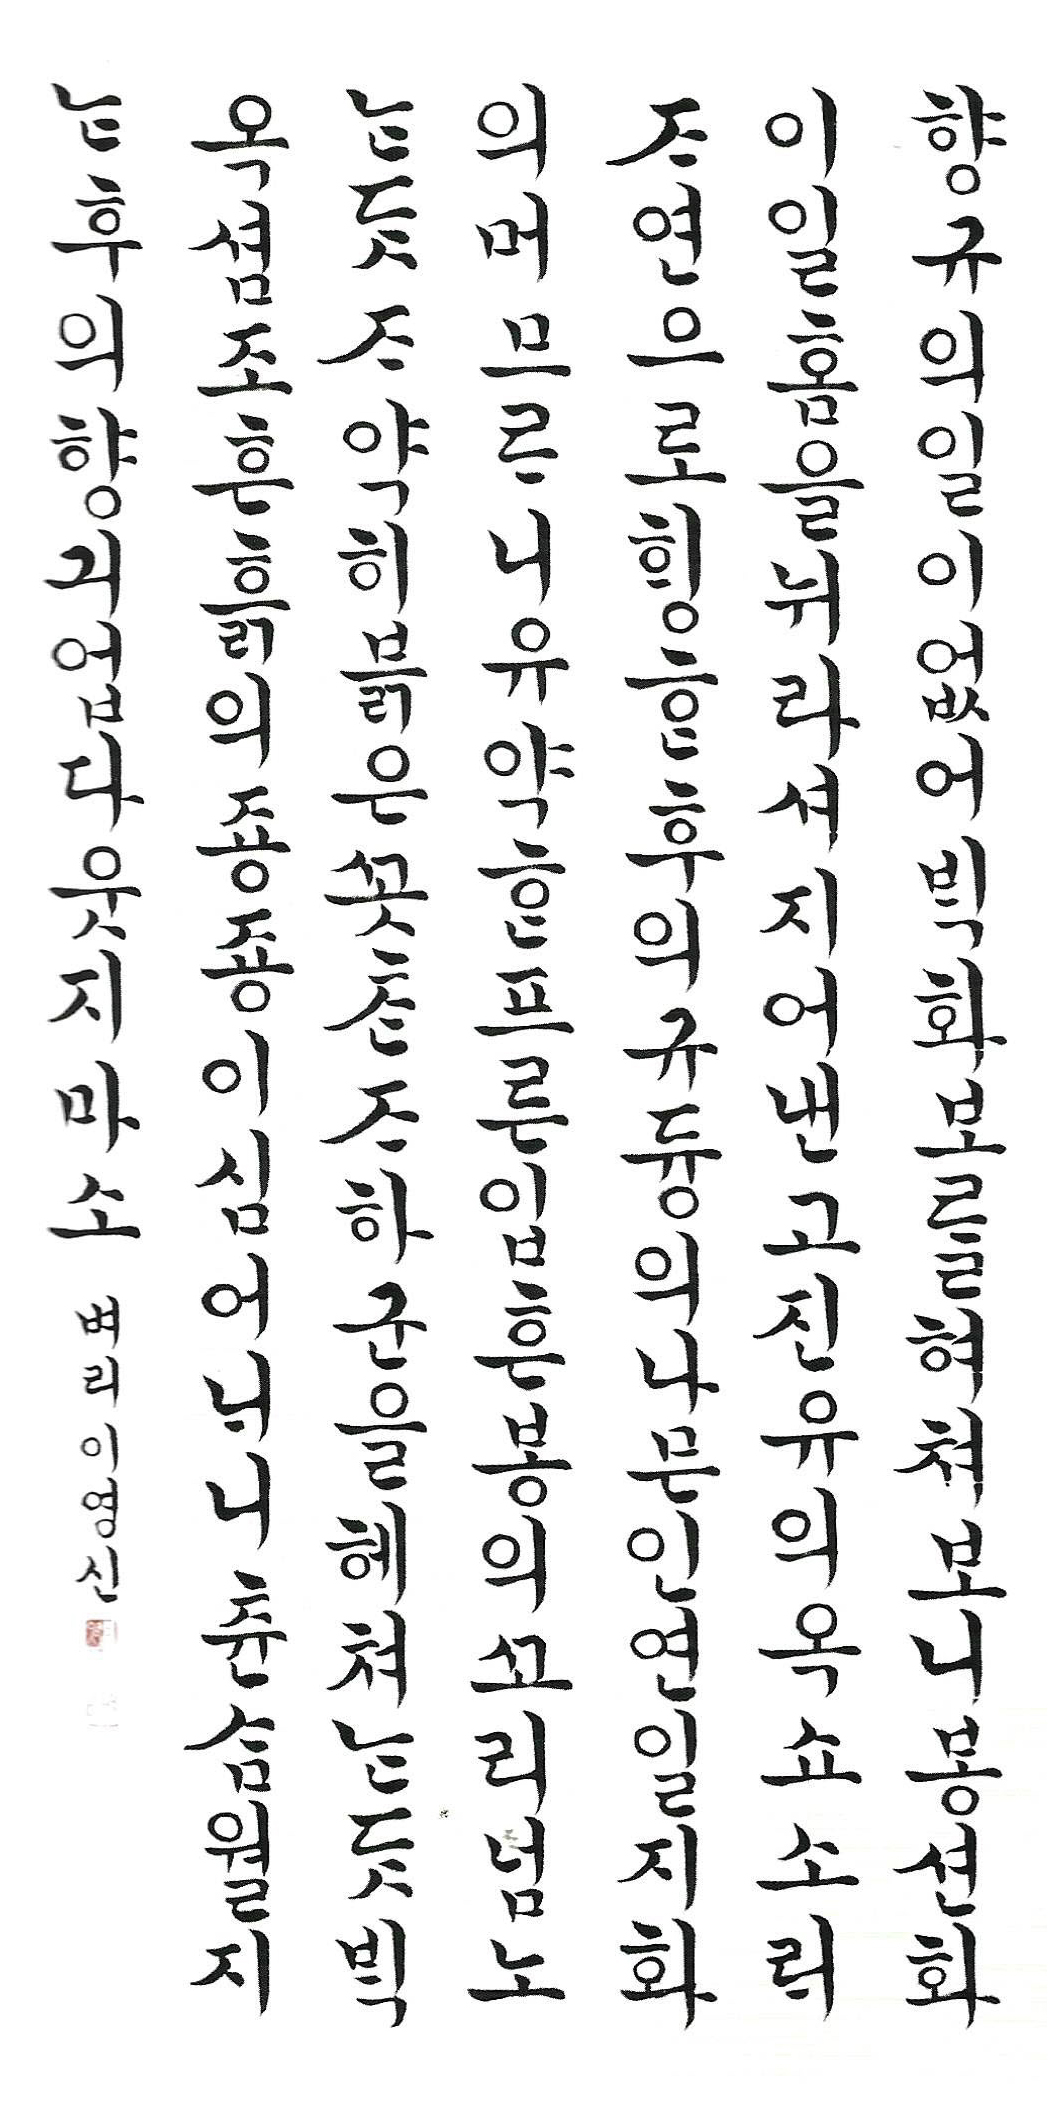 향규의일이없어ᄇᆡᆨ화보ᄅᆞᆯ혀쳐보니봉션화
이일홈을뉘라셔지어낸고진유의옥쇼소ᄅᆡ
ᄌᆞ연으로ᄒᆡᆼᄒᆞᆫ후의규듕의나믄인연일지화
의머므ᄅᆞ니유약ᄒᆞᆫ프른입흔봉의ᄭᅩ리넘노
ᄂᆞᆫᄃᆞᆺᄌᆞ약히븕은ᄭᅩᆺᄎᆞᆫᄌᆞ하군을헤쳐ᄂᆞᆫᄃᆞᆺᄇᆡᆨ
옥셤조흔흙의죵죵이심어ᄂᆡ니츈ᄉᆞᆷ월지
ᄂᆞᆫ후의향긔업다웃지마소 벼리이영신